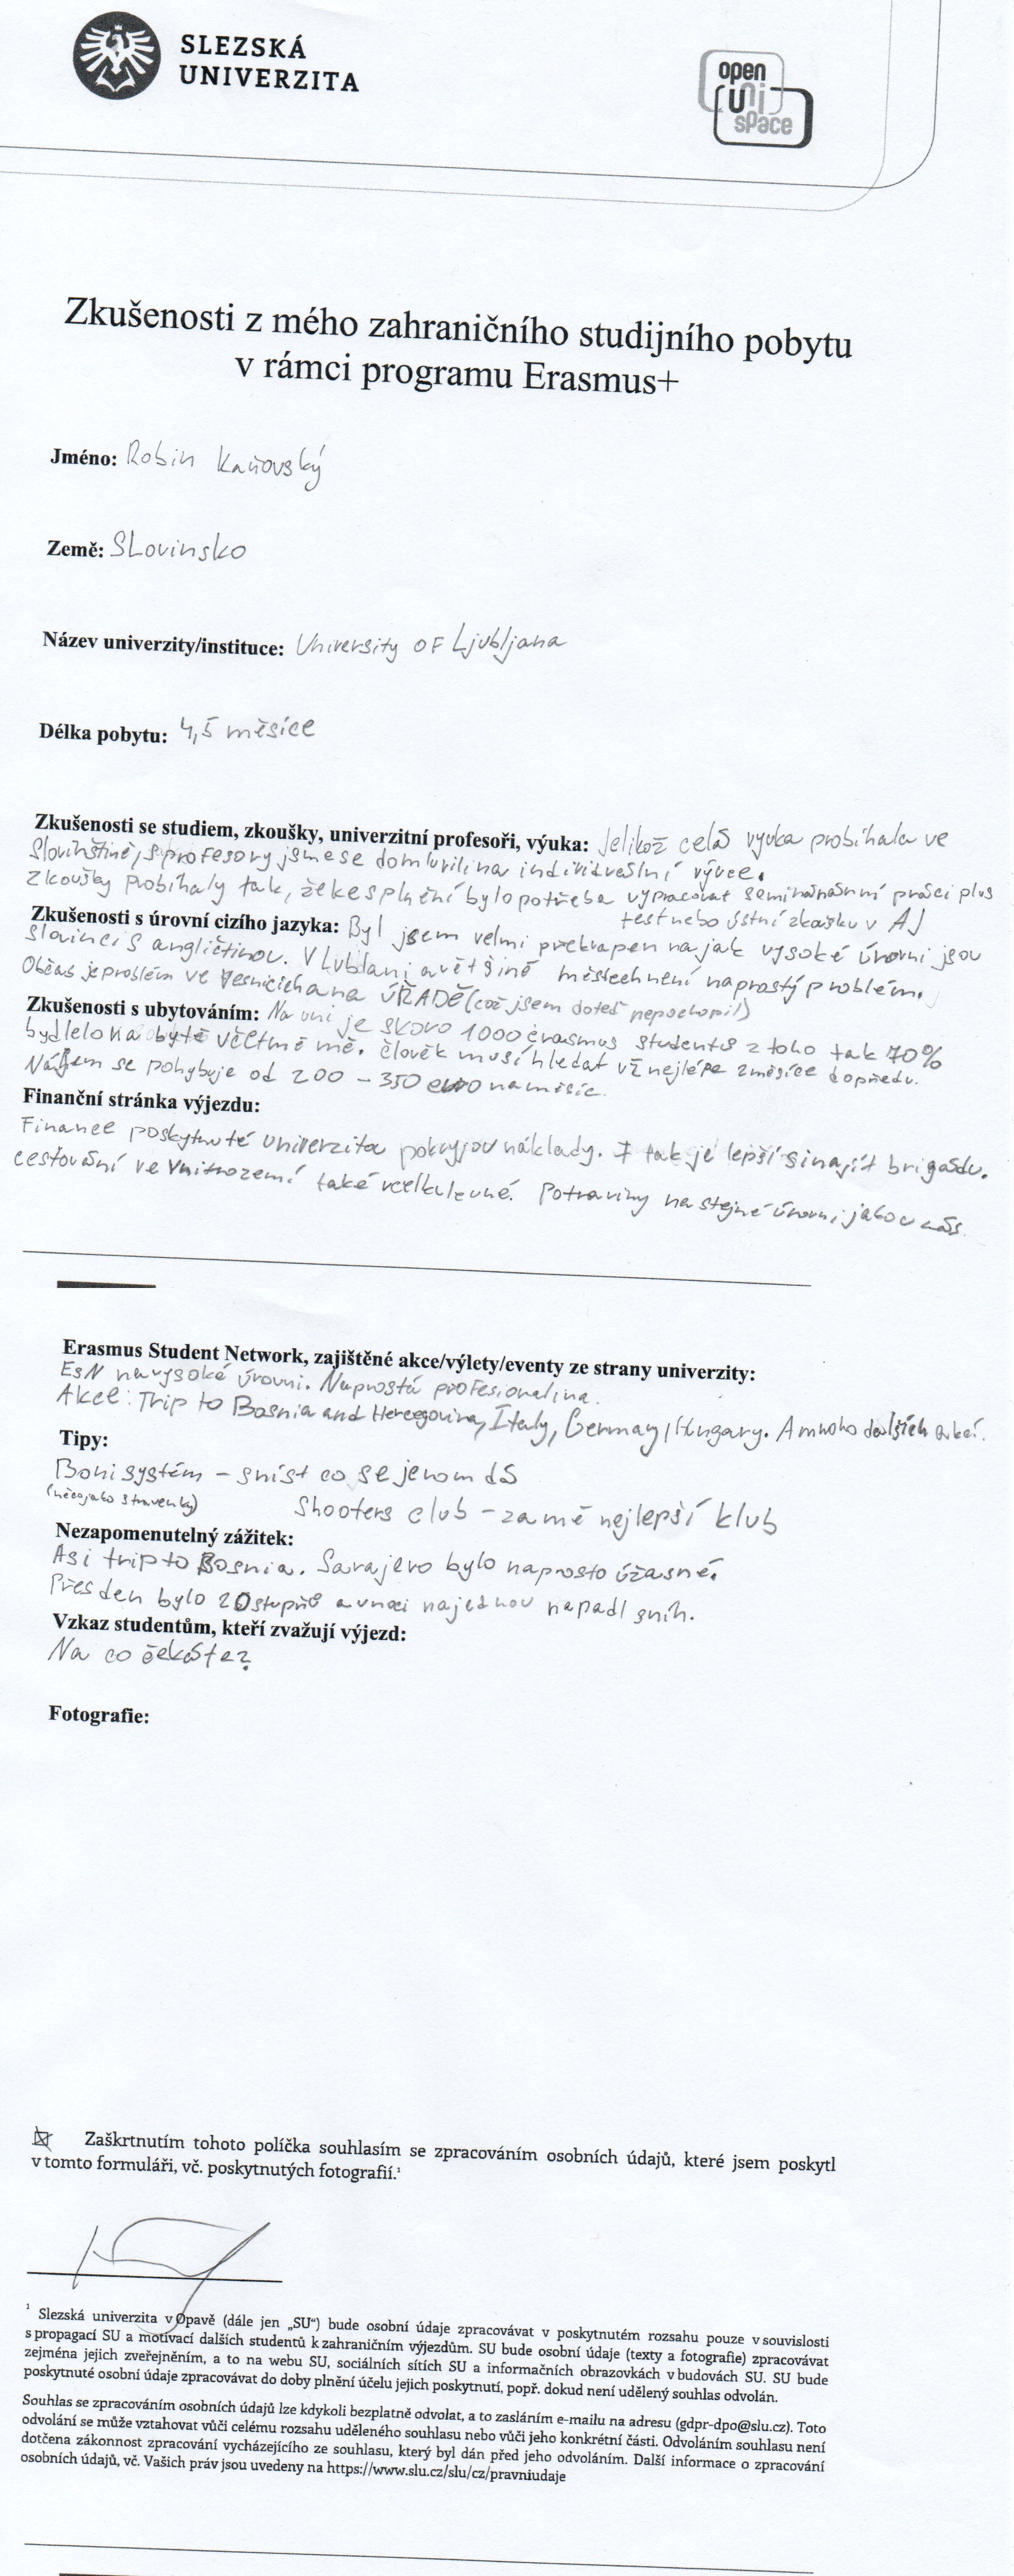 SLEZSKÁ
UNIVERZITA
open
uni
space
Zkušenosti z mého zahraničního studijního pobytu
v rámci programu Erasmus+
Jméno: Robin Kaňovský
Země: SLovinsko
Název univerzity/instituce: University OF Ljubljana
Délka pobytu: 4,5 měsíce
Zkušenosti se studiem, zkoušky, univerzitní profesoři, výuka: Jelikož celá vyuka probíhala ve
Slovinštině, s profesory jsme se domluvili na individuelní výuce.
Zkoušky Probíhaly tak, že ke splnění bylo potřeba vypracovat seminární práci plus
test nebo ústní zkoušku v AJ
Zkušenosti s úrovní cizího jazyka: Byl jsem velmi překvapen na jak vysoké úrovni jsou
Slovinci s angličtinou. V Lublani a většině městech není naprostý problém.
Občas je problém ve vesnicích a na ÚŘADĚ (což jsem doteš nepochopil)
Zkušenosti s ubytováním: Na uni je skoro 1000 erasmus studentů z toho tak 70%
bydlelo na bytě včetmě mě. člověk musí hledat už nejlépe 2 měsíce dopředu.
Nájem se pohybuje od 200 - 350 euro na měsíc.
Finanční stránka výjezdu:
Finance poskytnuté univerzitou pokryjou náklady. I tak je lepší si najít brigádu.
cestování ve vnitrozemí také vcelku levné. Potraviny na stejné úrovni jako u nás.
Erasmus Student Network, zajištěné akce/výlety/eventy ze strany univerzity:
ESN na vysoké úrovni. Naprostá profesionalina.
Akce: Trip to Bosnia and Hercegovina, Italy, Germany, Hungary. A mnoho dalších akcí.
Tipy:
Boni systém - sníst co se jenom dá
(něco jako stravenky)
Shooters club - za mě nejlepší klub
Nezapomenutelný zážitek:
Asi trip to Bosnia. Sarajevo bylo naprosto úžasné.
Přes den bylo 20 stupňů a v noci najednou napadl sníh.
Vzkaz studentům, kteří zvažují výjezd:
Na co čekáte?
Fotografie:
Zaškrtnutím tohoto políčka souhlasím se zpracováním osobních údajů, které jsem poskytl
v tomto formuláři, vč. poskytnutých fotografií.¹
¹ Slezská univerzita v Opavě (dále jen „SU“) bude osobní údaje zpracovávat v poskytnutém rozsahu pouze v souvislosti
s propagací SU a motivací dalších studentů k zahraničním výjezdům. SU bude osobní údaje (texty a fotografie) zpracovávat
zejména jejich zveřejněním, a to na webu SU, sociálních sítích SU a informačních obrazovkách v budovách SU. SU bude
poskytnuté osobní údaje zpracovávat do doby plnění účelu jejich poskytnutí, popř. dokud není udělený souhlas odvolán.
Souhlas se zpracováním osobních údajů lze kdykoli bezplatně odvolat, a to zasláním e-mailu na adresu (gdpr-dpo@slu.cz). Toto
odvolání se může vztahovat vůči celému rozsahu uděleného souhlasu nebo vůči jeho konkrétní části. Odvoláním souhlasu není
dotčena zákonnost zpracování vycházejícího ze souhlasu, který byl dán před jeho odvoláním. Další informace o zpracování
osobních údajů, vč. Vašich práv jsou uvedeny na https://www.slu.cz/slu/cz/pravniudaje